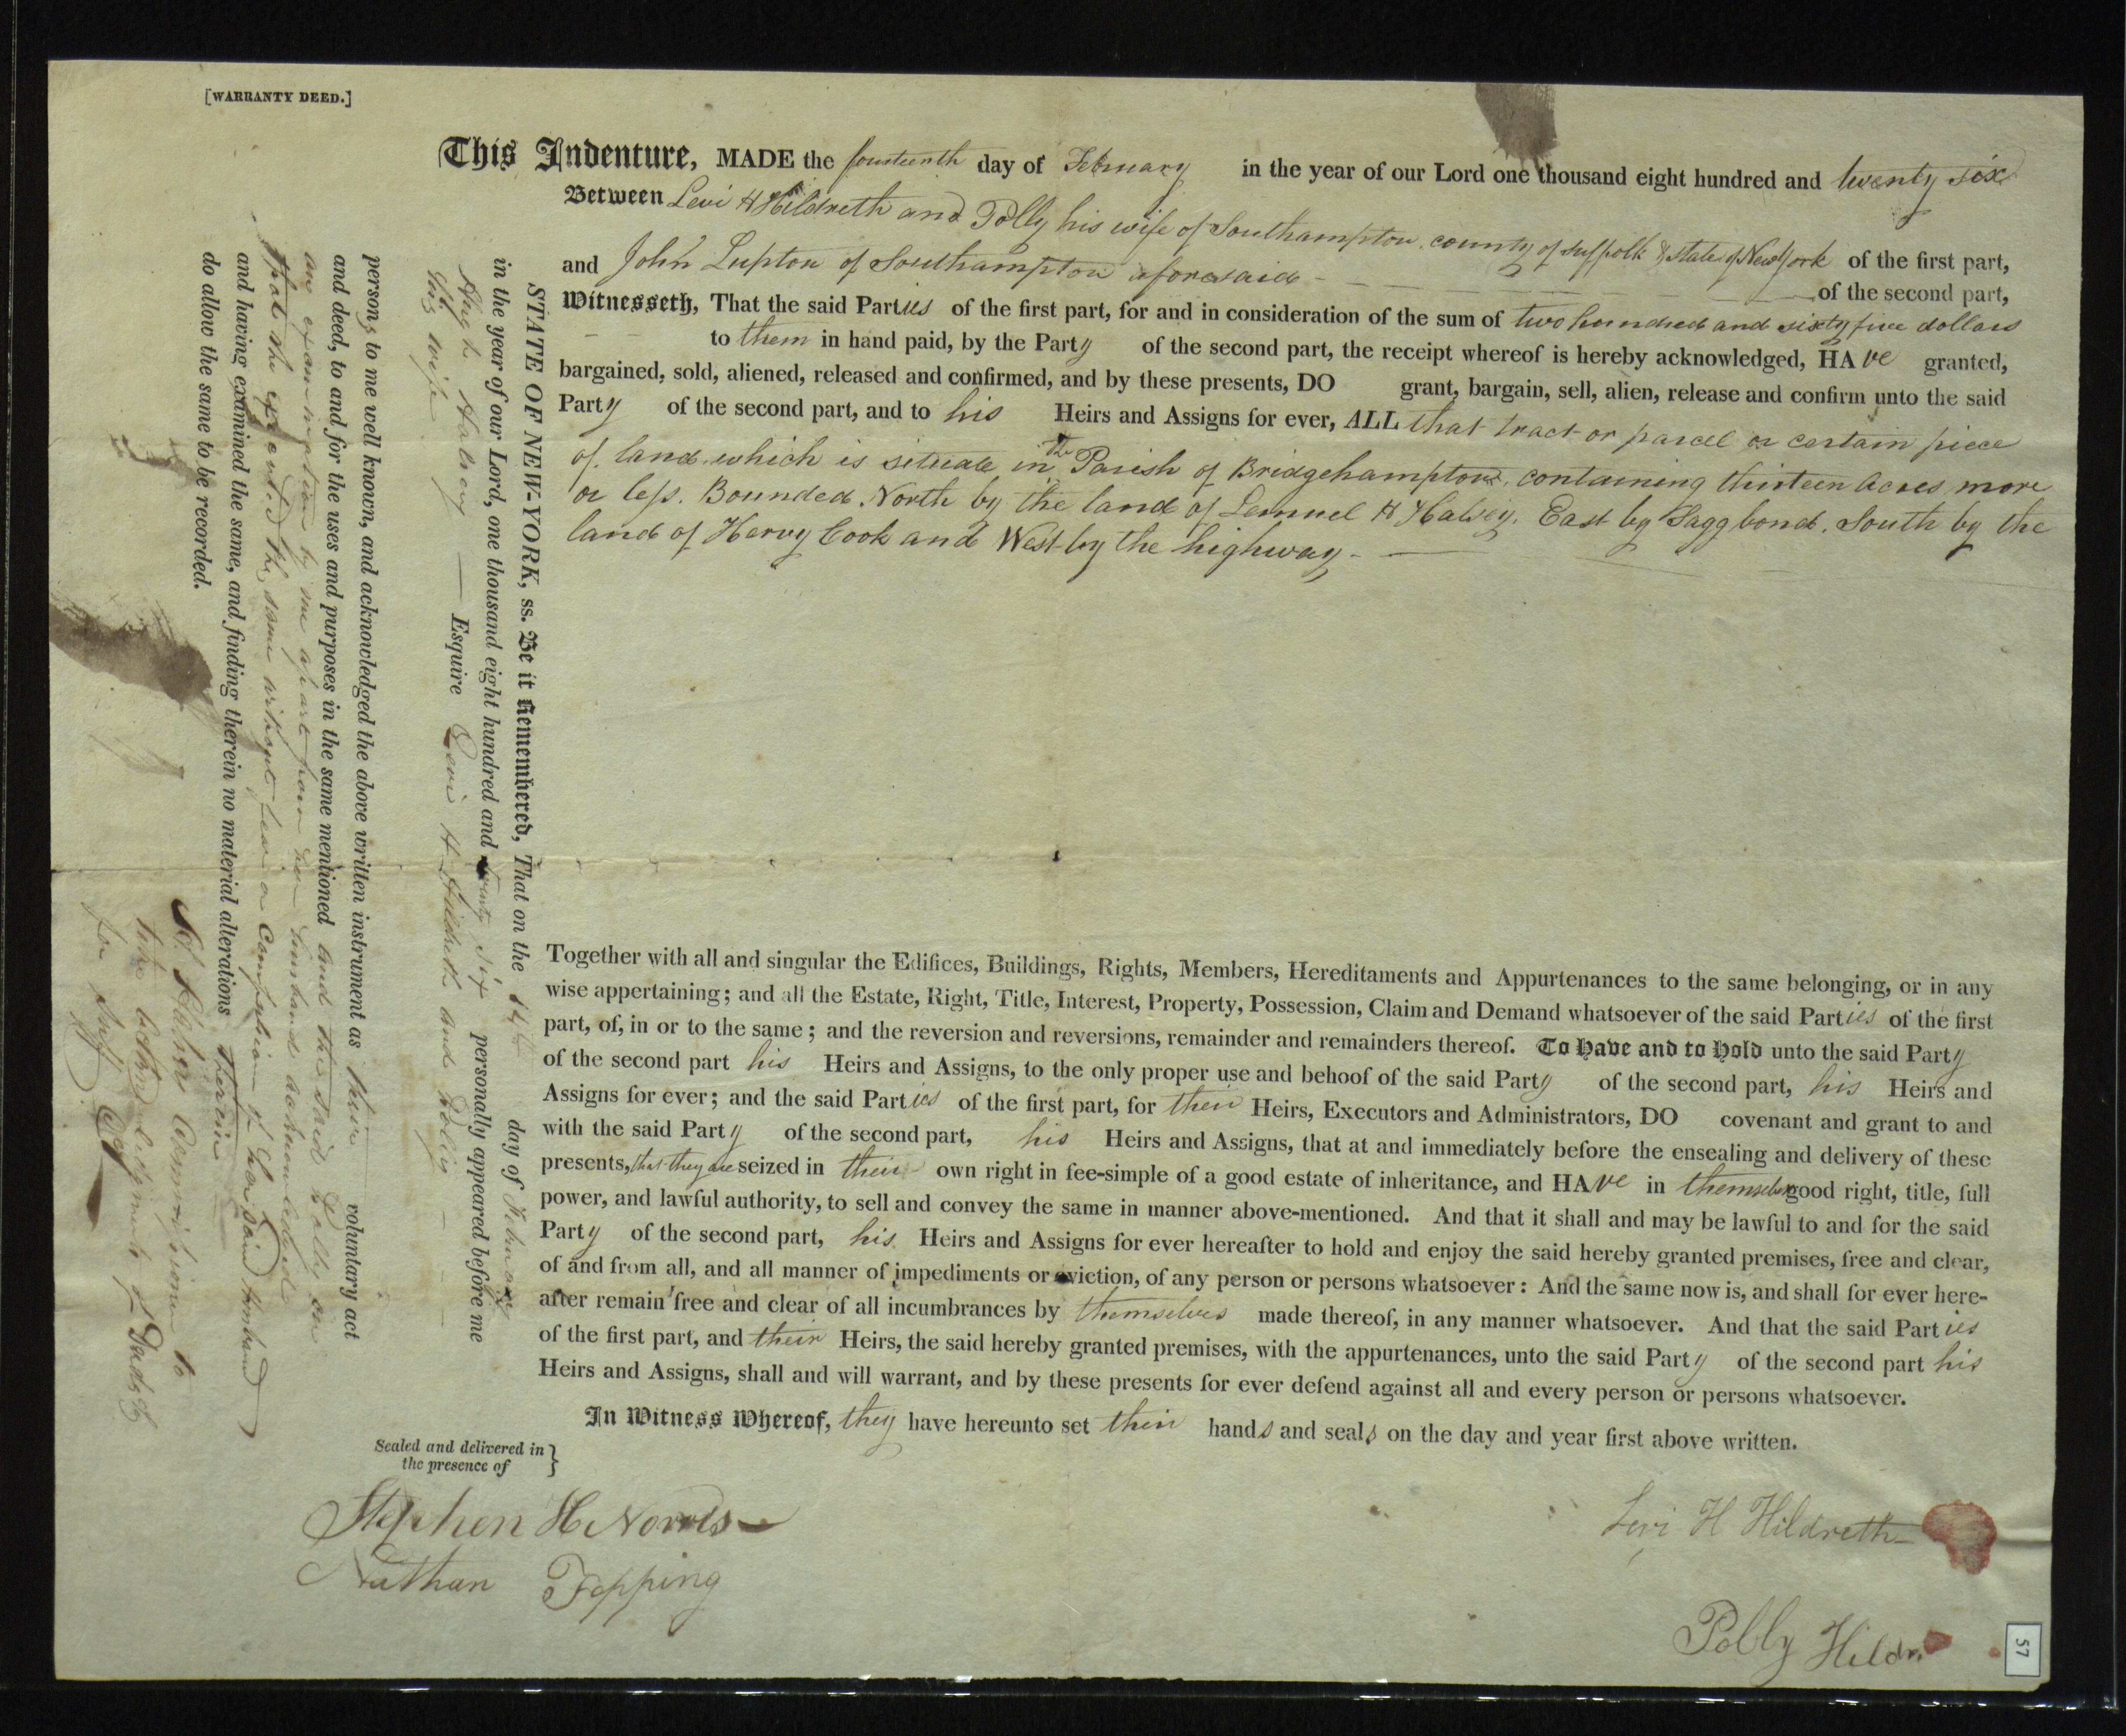 [WARRANTY DEED.]
This Indenture, MADE the fourteenth day of February in the year of our Lord one thousand eight hundred and twenty six
Between Levi H Hildreth and Polly his wife of Southampton county of Suffolk & state of New York of the first part,
and John Lupton of Southampton aforesaid of the second part,
Witnesseth, That the said Parties of the first part, for and in consideration of the sum of two hundred and sixty five dollars
to them in hand paid, by the Party of the second part, the receipt whereof is hereby acknowledged, HAve granted,
bargained, sold, aliened, released and confirmed, and by these presents, DO grant, bargain, sell, alien, release and confirm unto the said
Party of the second part, and to his Heirs and Assigns for ever, ALL that tract or parcel or certain piece
of land which is situate in the Parish of Bridgehampton, containing thirteen Acres more
or less. Bounded North by the land of Lemuel H Halsey. East by Sagg bond. South by the
land of Harvy Cook and West by the highway.
Together with all and singular the Edifices, Buildings, Rights, Members, Hereditaments and Appurtenances to the same belonging, or in any
wise appertaining; and all the Estate, Right, Title, Interest, Property, Possession, Claim and Demand whatsoever of the said Parties of the first
part, of, in or to the same; and the reversion and reversions, remainder and remainders thereof. To have and to hold unto the said Party
of the second part his Heirs and Assigns, to the only proper use and behoof of the said Party of the second part, his Heirs and
Assigns for ever; and the said Parties of the first part, for their Heirs, Executors and Administrators, DO covenant and grant to and
with the said Party of the second part, his Heirs and Assigns, that at and immediately before the ensealing and delivery of these
presents, that they are seized in their own right in fee-simple of a good estate of inheritance, and HAve in themselves good right, title, full
power, and lawful authority, to sell and convey the same in manner above-mentioned. And that it shall and may be lawful to and for the said
Party of the second part, his Heirs and Assigns for ever hereafter to hold and enjoy the said hereby granted premises, free and clear,
of and from all, and all manner of impediments or eviction, of any person or persons whatsoever: And the same now is, and shall for ever here-
after remain free and clear of all incumbrances by themselves made thereof, in any manner whatsoever. And that the said Parties
of the first part, and their Heirs, the said hereby granted premises, with the appurtenances, unto the said Party of the second part his
Heirs and Assigns, shall and will warrant, and by these presents for ever defend against all and every person or persons whatsoever.
In Witness Whereof, they have hereunto set their hands and seals on the day and year first above written.
Sealed and delivered in
the presence of
Stephen H Norris
Nathan Topping
Levi H Hildreth
Polly Hildr
57
STATE OF NEW-YORK, ss. Be it Remembered, That on the 14th day of February
in the year of our Lord, one thousand eight hundred and twenty six personally appeared before me
Hugh Halsey Esquire Levi H Hildreth and Polly
his wife
persons to me well known, and acknowledged the above written instrument as their voluntary act
and deed, to and for the uses and purposes in the same mentioned and the said Polly on
an examination by me apart from her husband acknowledged
that she executed the same without fear or compulsion of her said husband
and having examined the same, and finding therein no material alterations therein
do allow the same to be recorded.
H. Halsey Commissioner to
take acknowledgments of Deads &c
for Suff. Co